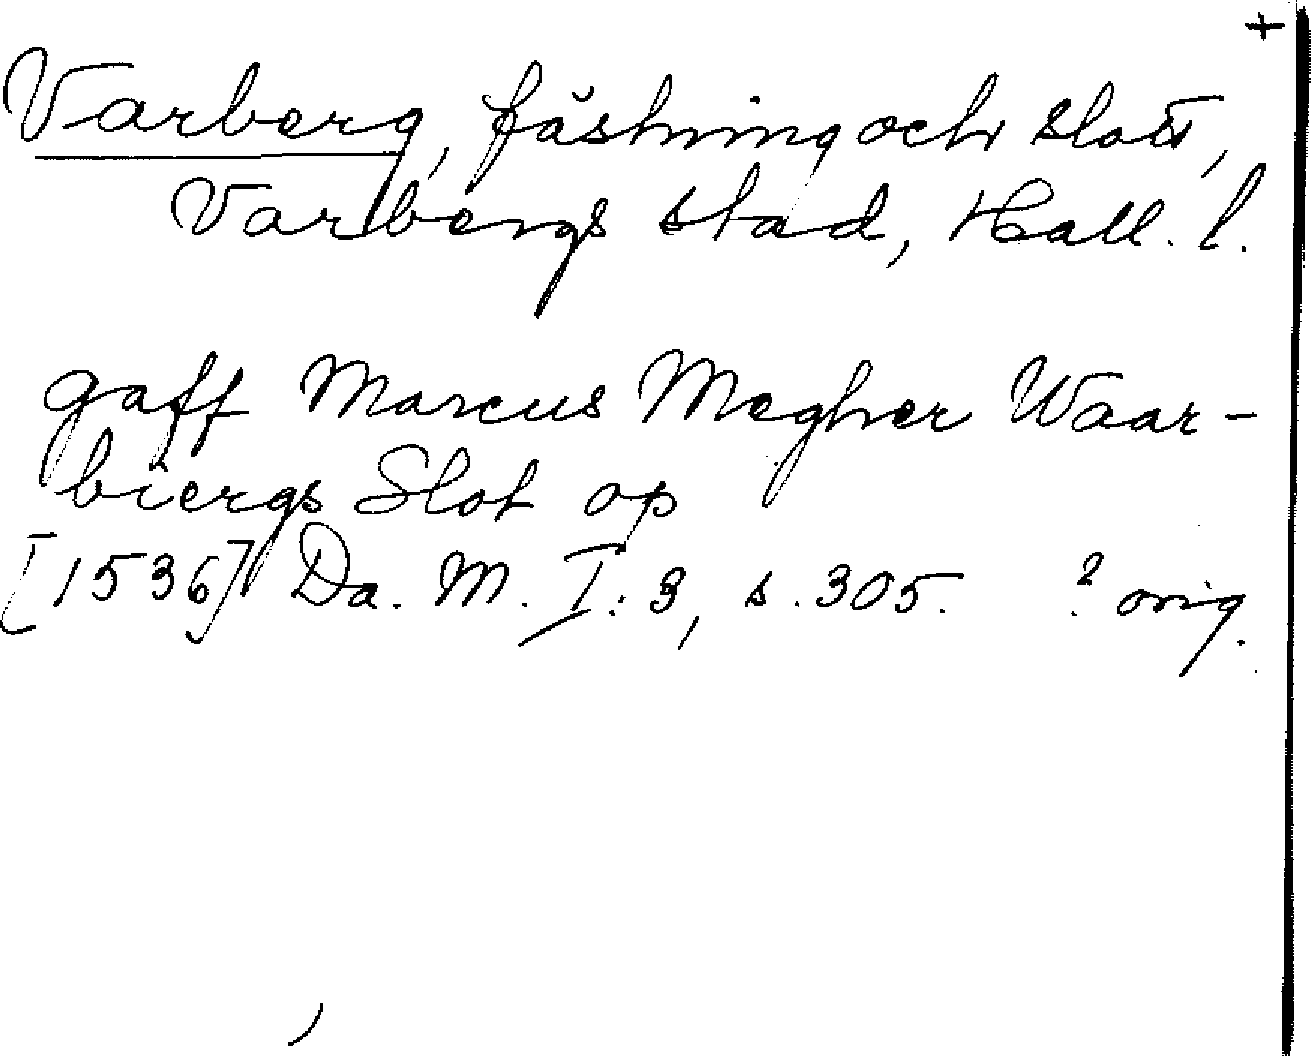 +
Varberg, fästning och slott,
Varbergs stad, Hall. l.
gaff Marcus Megher Waar-
biergs Slot op
[1536] Da. M. I: 3, s. 305. ? orig.